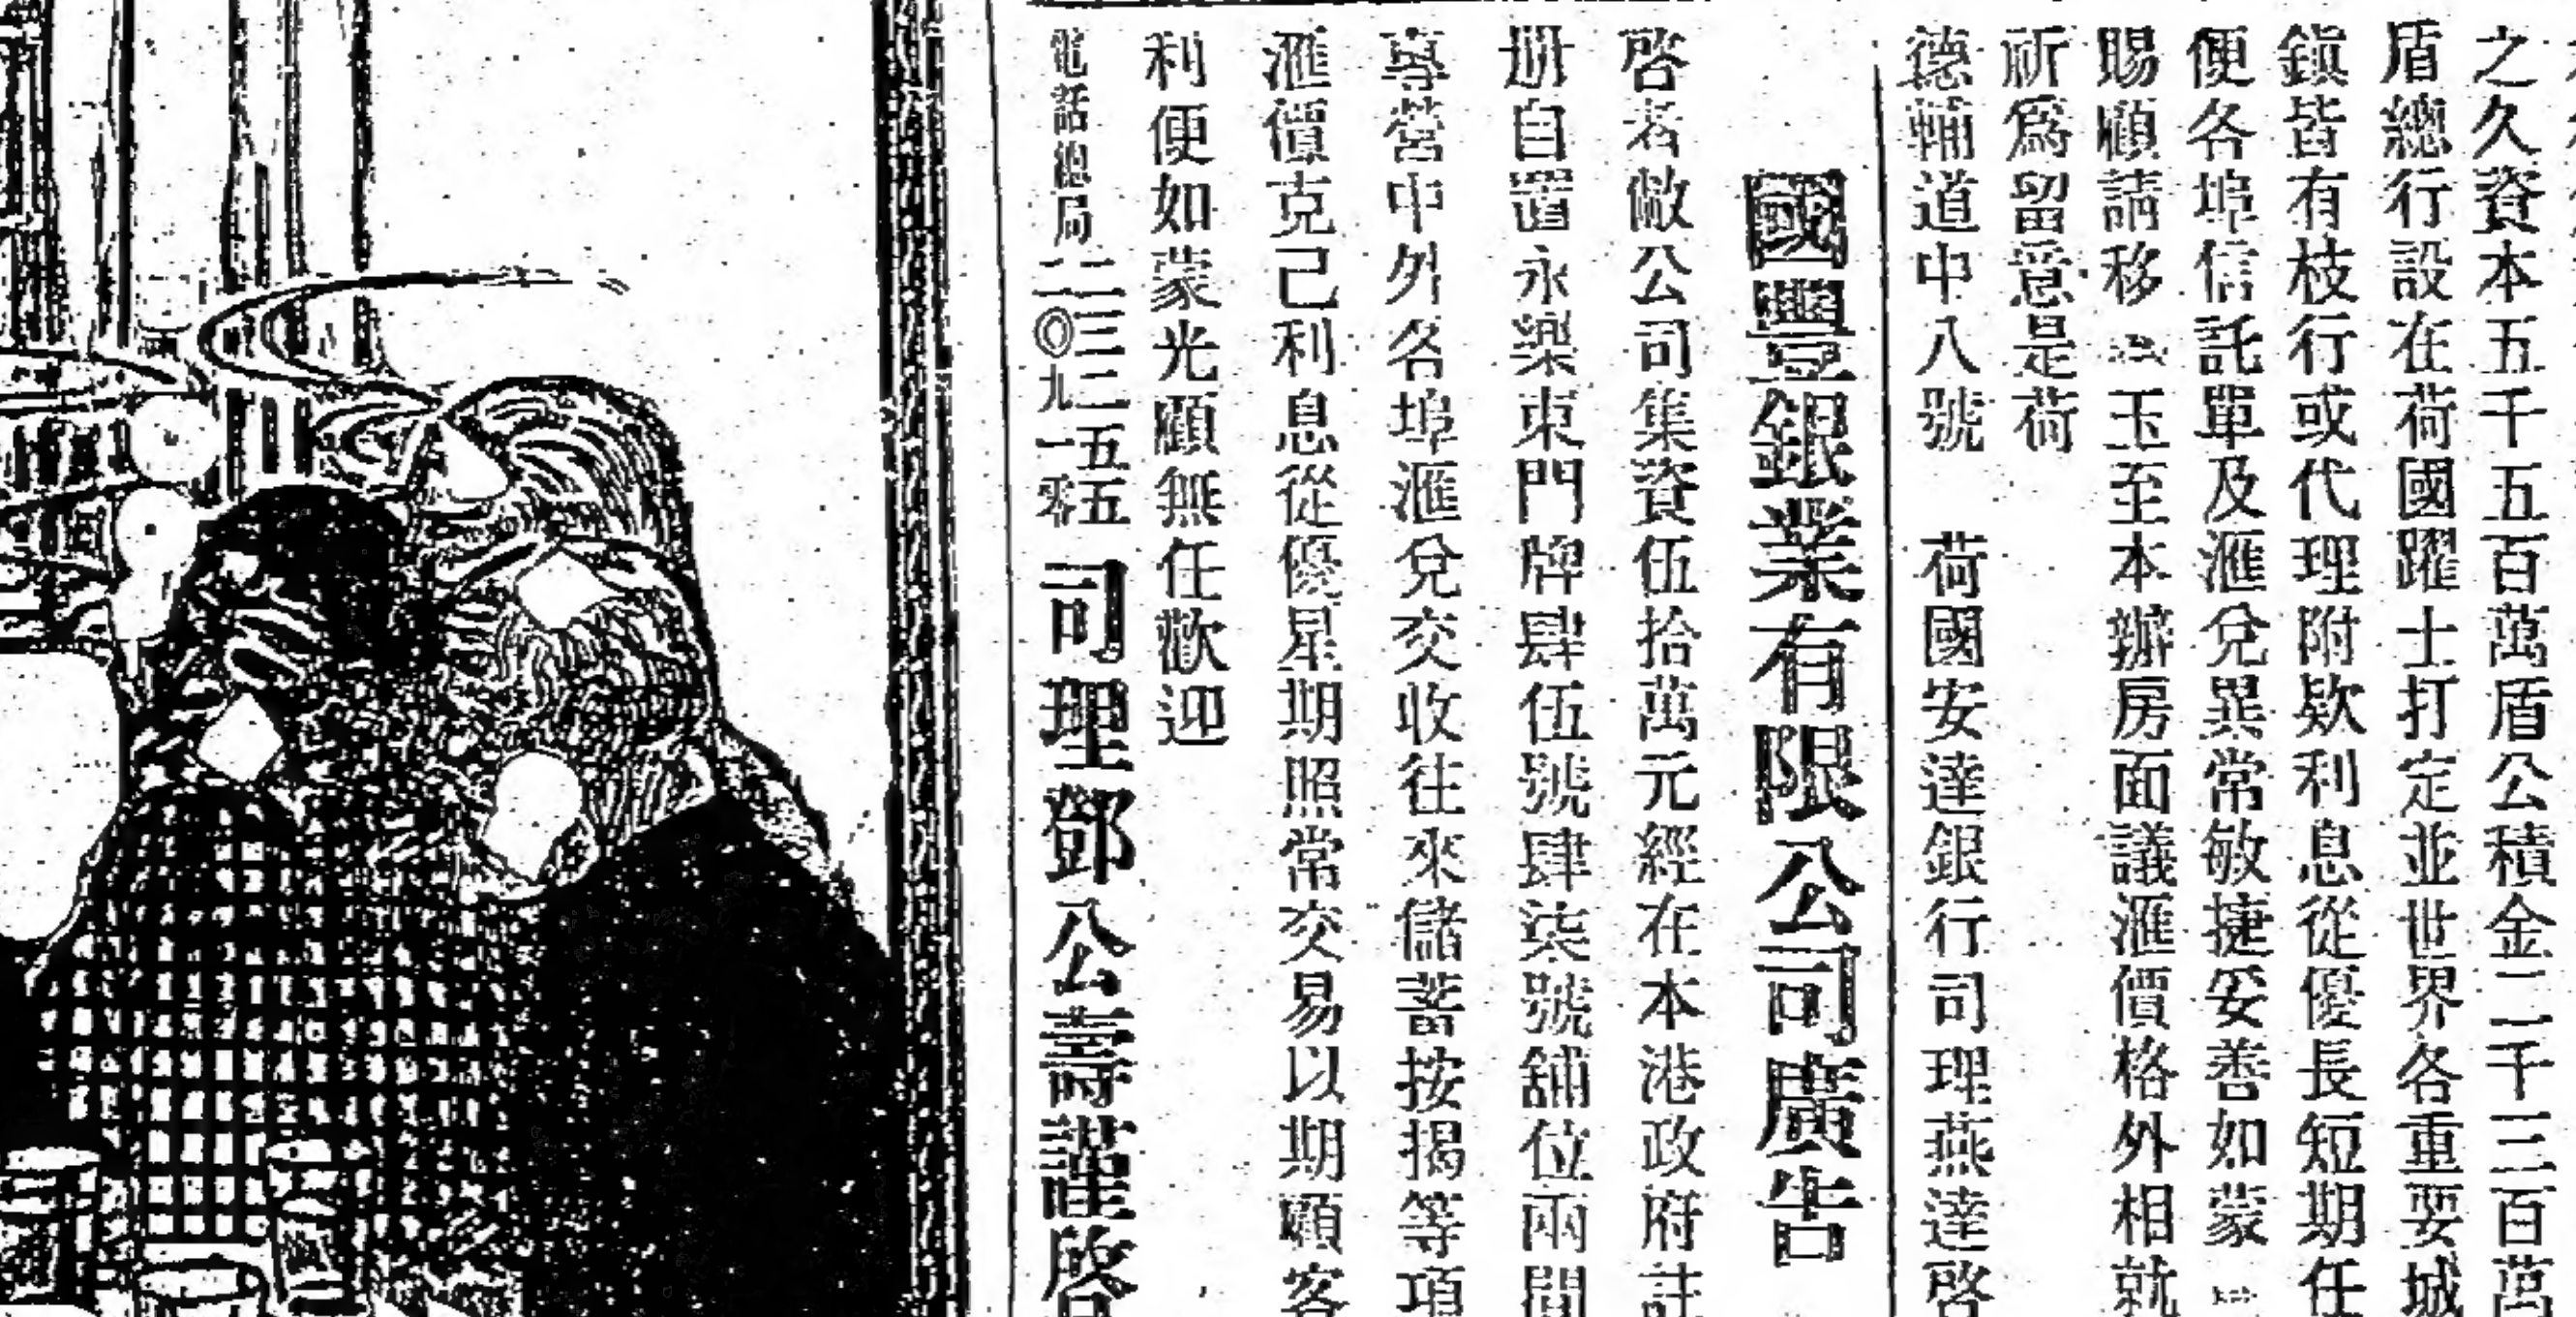 之久資本五千五百萬盾公積金二千三百萬
盾總行設在荷國躍士打定並世界各重要城
鎭皆有枝行或代理附欵利息從優長短期任
便各埠信託單及滙兌異常敏捷妥善如蒙
賜顧請移玉至本辦房面議滙價格外相就
祈爲留意是荷
德輔道中八號 荷國安達銀行司理燕達啓
國豐銀業有限公司廣告
啓者敝公司集資伍拾萬元經在本港政府註
册自置永樂東門牌肆伍號肆柒號舖位兩間
專營中外各埠滙兌交收往來儲蓄按揭等項
滙價克己利息從優星期照常交易以期顧客
利便如蒙光顧無任歡迎
電話總局 二三二五五
二〇九一零
司理鄧公壽謹啓